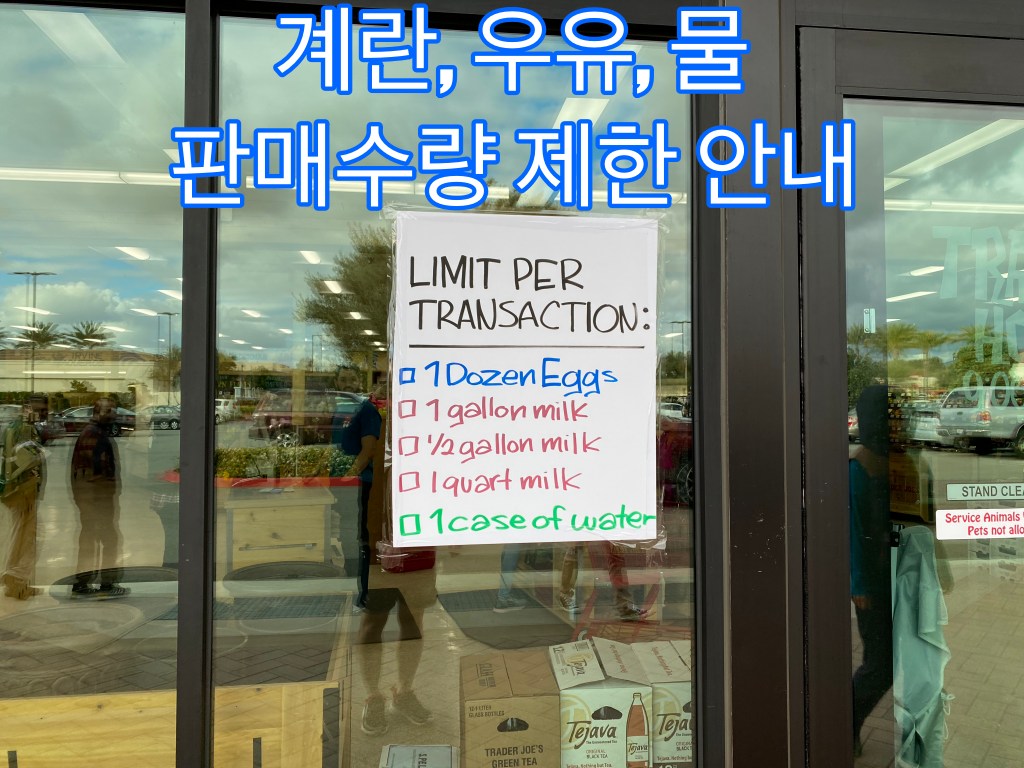 계란, 우유, 물
판매수량 제한 안내
LIMIT PER
TRANSACTION:
1 Dozen Eggs
1 gallon milk
1/2 gallon milk
1 quart milk
1 case of water
STAND CLEA
Service Animals
Pets not allo
Tejava
ORIGINAL
BLACK TEA
Tejava
Teja
TRADER JOE'S
GREEN TEA